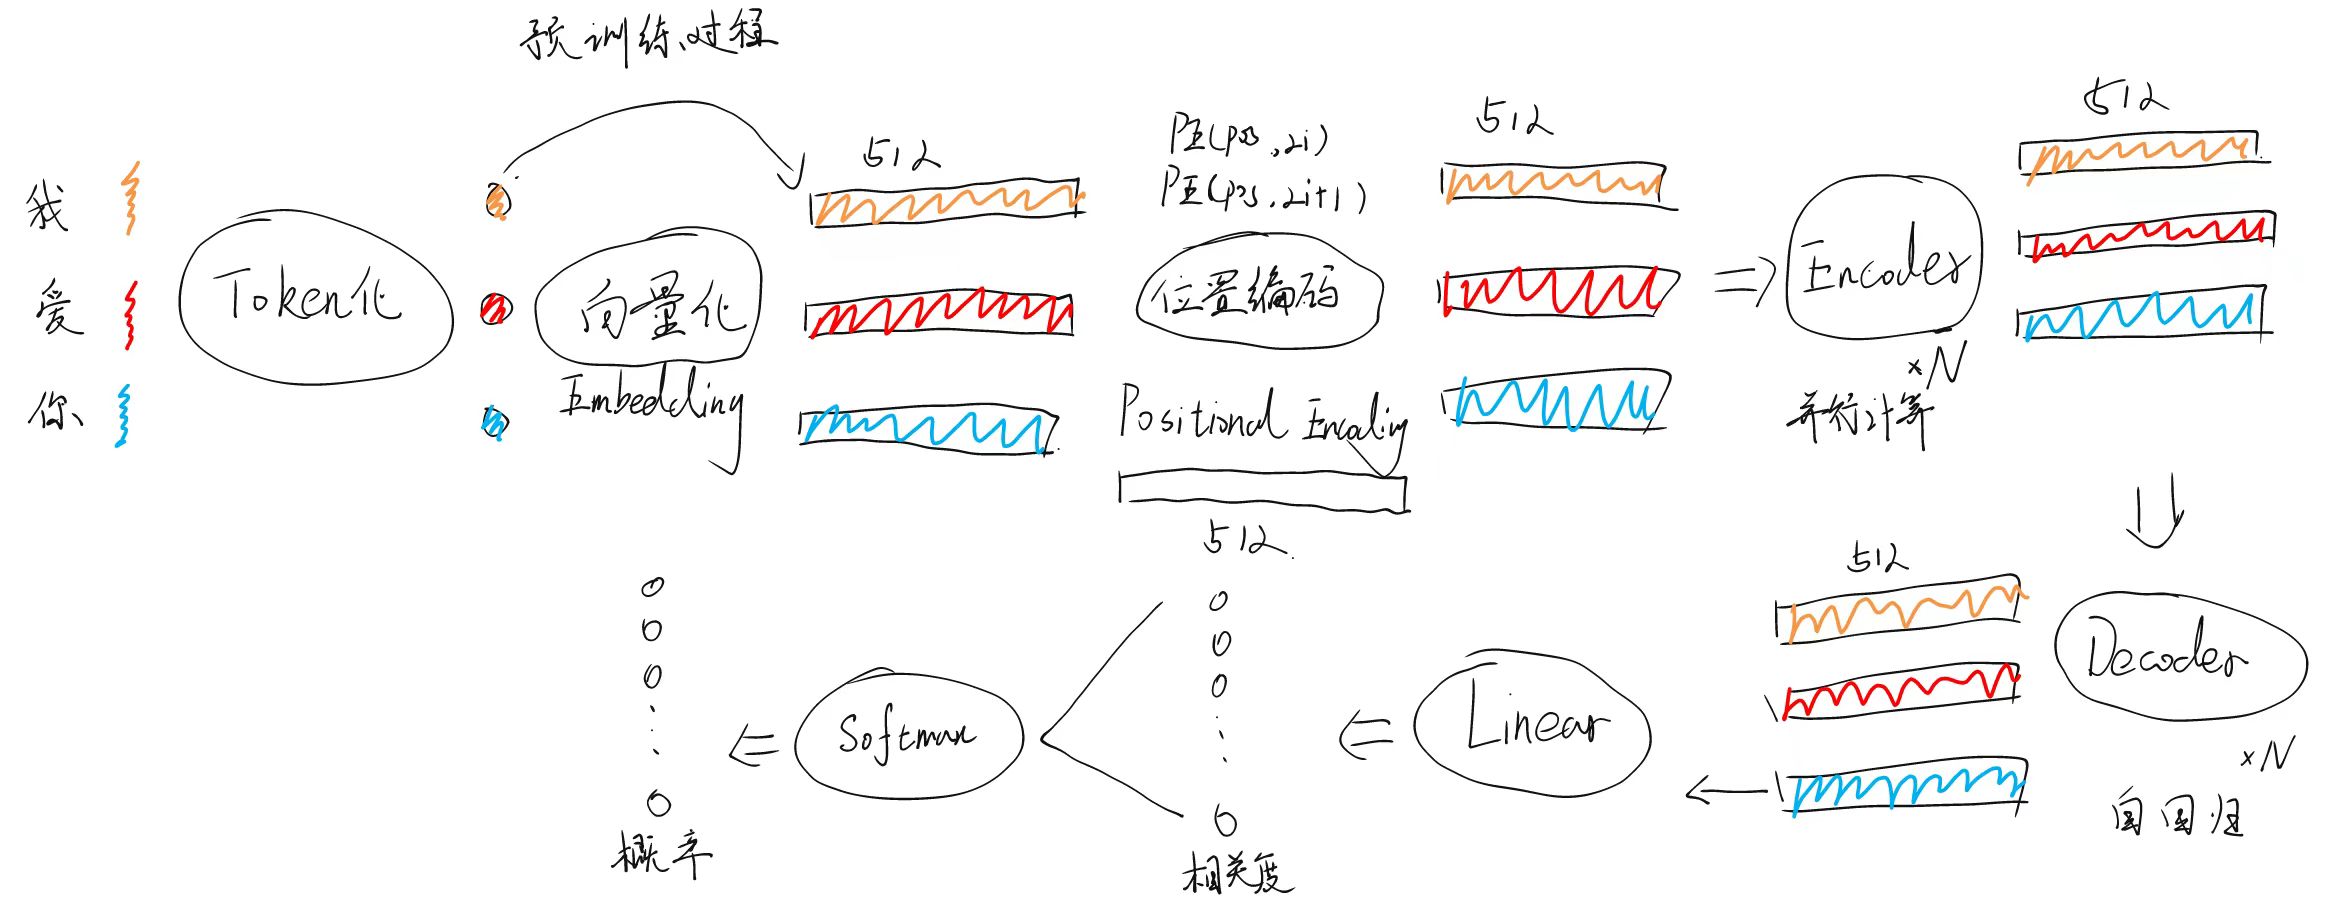 预训练过程
我
爱
你
Token化
向量化
Embedding
512
PE(pos,2i)
PE(pos,2i+1)
位置编码
Positional Encoding
512
512
Encoder
×N
并行计算
512
Decoder
×N
自回归
512
Linear
相关度
Softmax
概率